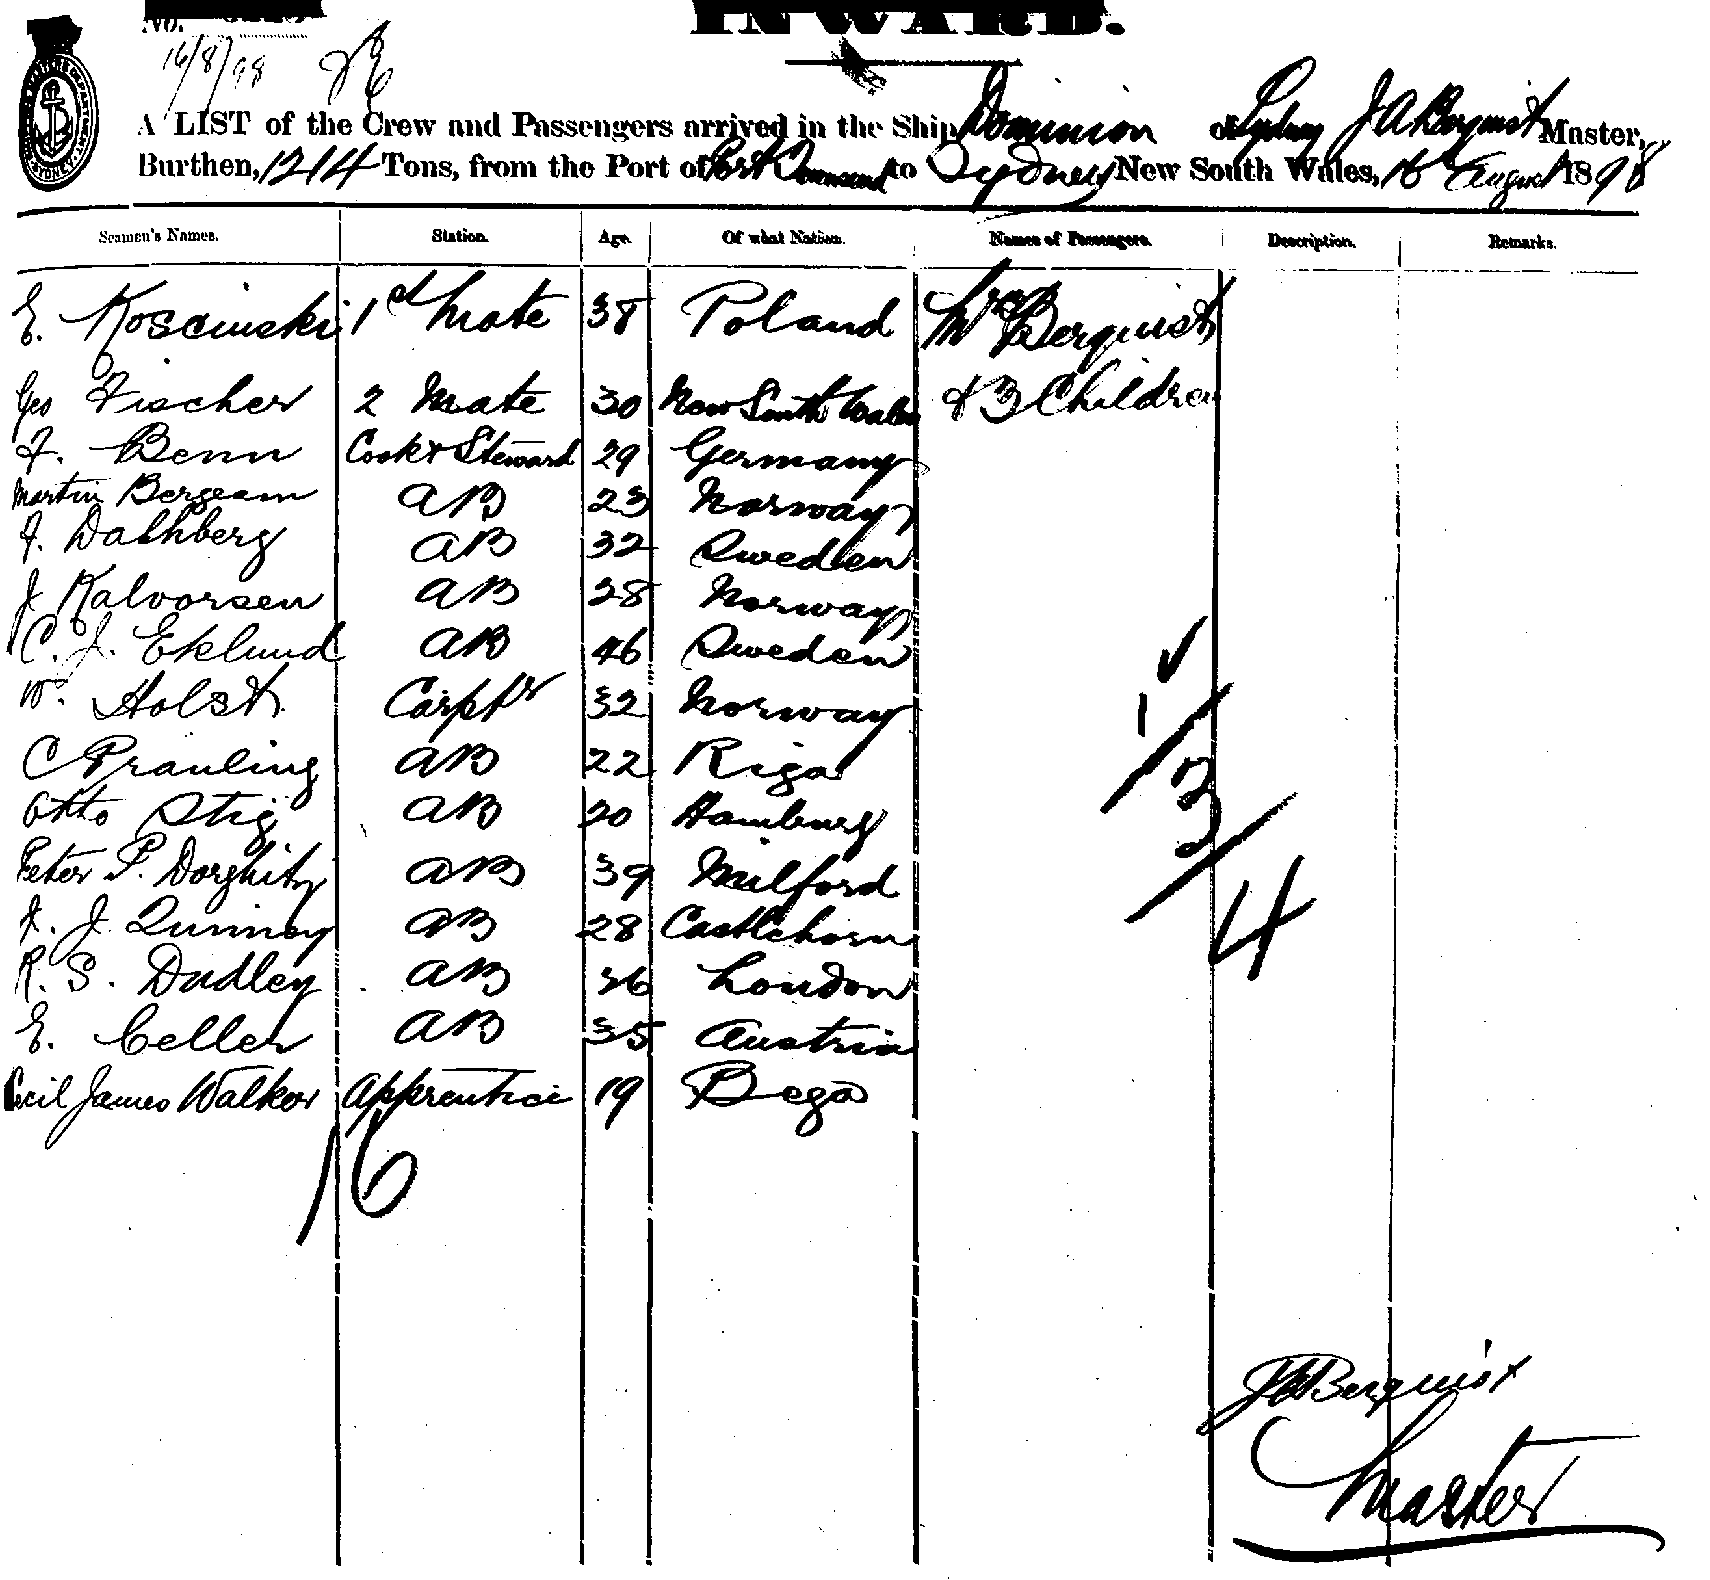 No.
INWARD.
16/8/98
A LIST of the Crew and Passengers arrived in the Ship Dominion of Sydney J A Berquist Master,
Burthen, 1214 Tons, from the Port of Port Townsend to Sydney New South Wales, 16 August 1898
Seamen's Names. Station. Age. Of what Nation. Names of Passengers. Description. Remarks.
E. Koscinski 1st Mate 38 Poland Mrs Berquist
Geo Fischer 2 Mate 30 New South Wales & 3 Children
F. Benn Cook & Steward 29 Germany
Martin Bergeam AB 23 Norway
J. Dathberg AB 32 Sweden
J Kalvorsen AB 28 Norway
C. J. Eklund AB 46 Sweden
W. Holst Carptr 32 Norway
C Prauling AB 22 Riga
Otto Stig AB 20 Hamburg
Peter P. Dorghity AB 39 Milford
F. J. Quinney AB 28 Castlehorn
R. S. Dudley AB 36 London
E. Celler AB 35 Austria
Cecil James Walker Apprentice 19 Bega
16
1/3/4
J A Berquist
Master